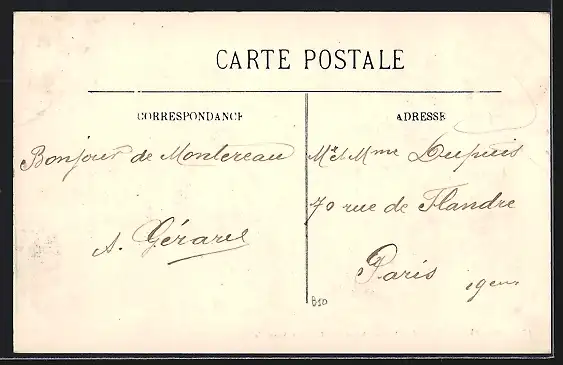 CARTE POSTALE
CORRESPONDANCE
ADRESSE
Bonjour de Montereau
A. Gérard
Mr et Mme Dupuis
70 rue de Flandre
Paris
B10